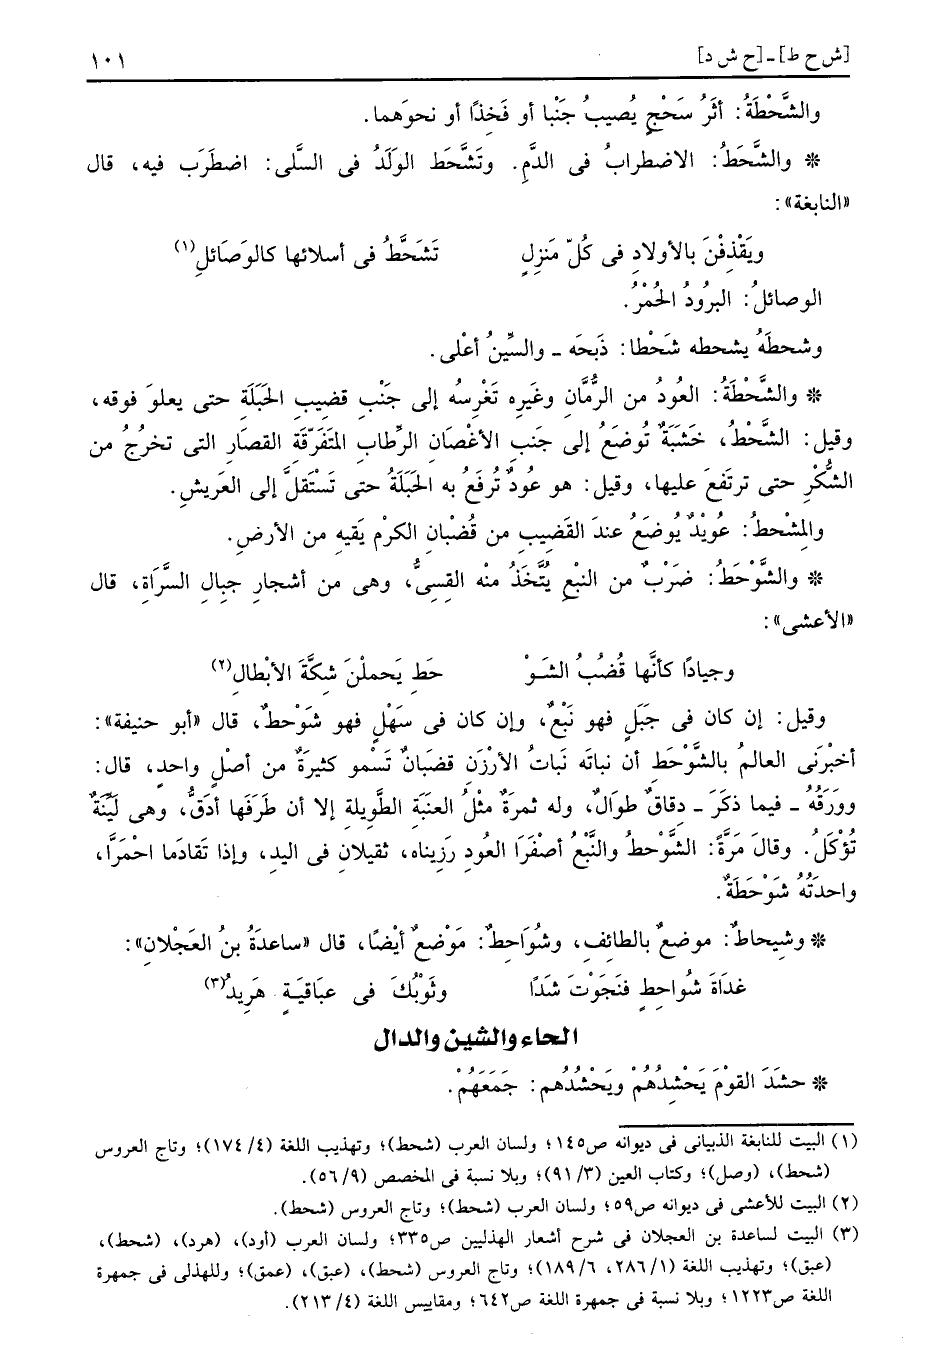 [ش ح ط] - [ح ش د] ١٠١
والشَّحْطَةُ: أثَرُ سَحْجٍ يُصيبُ جَنْبا أو فَخذًا أو نحوَهما.
* والشَّحَطُ: الاضطرابُ فى الدَّمِ. وتَشَّحَط الوَلَدُ فى السلَّى: اضطَرَب فيه، قال
«النابغة»:
ويَقْذِفْنَ بالأولادِ فى كُلّ مَنزِلٍ تَشَحَّطُ فى أسلائها كالوَصَائلِ(١)
الوصائلُ: البرودُ الحُمْرُ.
وشحطَهُ يشحطه شَحْطا: ذَبحَه - والسِّينُ أعْلى.
* والشَّحْطَةُ: العُودُ من الرُّمَّانِ وغَيرِه تَغْرِسُه إلى جَنْبِ قضيبِ الحَبَلَةِ حتى يعلوَ فوقه،
وقيل: الشَّحْطُ، خَشَبَةٌ تُوضَعُ إلى جَنبِ الأغْصَانِ الرِّطابِ المتَفَرّقَةِ القصَارِ التى تخرُجُ من
الشُّكْرِ حتى ترتَفعَ عليها، وقيل: هو عُودٌ تُرفَعُ به الحَبَلَةُ حتى تَسْتَقلَّ إلى العَريشِ.
والمِشْحطُ: عوُيْدٌ يُوضَعُ عندَ القَضيبِ من قُضْبانِ الكرْمِ يَقيه من الأرضِ.
* والشَّوْحَطُ: ضَرْبٌ من النبْعِ يُتَّخَذُ منْه القِسىُّ، وهى من أشجارِ جبالِ السَّرَاة، قال
«الأعشى»:
وجيادًا كأنَّها قُضُبُ الشَوْ حَطِ يَحملْنَ شِكَّةَ الأبْطالِ(٢)
وقيل: إن كان فى جَبَلٍ فهو نَبْعٌ، وإن كان فى سَهْلٍ فهو شَوْحطٌ، قال «أبو حنيفة»:
أخبْرَنى العالمُ بالشَّوْحَطِ أن نباتَه نَباتُ الأرْزَنِ قضبَانٌ تَسْمو كثيرَةٌ من أصلٍ واحدٍ، قال:
وورَقُهُ - فيما ذكَرَ - دِقاقٌ طوَالٌ، وله ثمرَةٌ مثْلُ العنَبَةِ الطَّويلة إلا أن طَرَفَها أدَقُّ، وهى لَيِّنَةٌ
تُؤكَلُ. وقالَ مَرَّةً: الشَّوْحطُ والنَّبْعُ أصفَرَا العُودِ رَزيناه، ثقيلان فى اليد، وإذا تَقادَما احْمَرَّا،
واحدَتُهُ شَوْحَطَةٌ.
* وشِيحاطٌ: موضعٌ بالطائف، وشُوَاحِطٌ: مَوْضعٌ أيْضًا، قال «ساعدَةُ بنُ العَجْلان»:
غدَاَةَ شُواحطٍ فنَجَوْتَ شَدّا وثَوْبُكَ فى عبَاقيَةٍ هَرِيدٌ(٣)
الحاء والشين والدال
* حشَدَ القوْمَ يَحْشِدُهُمْ ويَحْشُدُهم: جَمَعَهُمْ.
(١) البيت للنابغة الذبيانى فى ديوانه ص١٤٥؛ ولسان العرب (شحط)؛ وتهذيب اللغة (٤/ ١٧٤)؛ وتاج العروس
(شحط)، (وصل)؛ وكتاب العين (٣/ ٩١)؛ وبلا نسبة فى المخصص (٩/ ٥٦).
(٢) البيت للأعشى فى ديوانه ص٥٩؛ ولسان العرب (شحط)؛ وتاج العروس (شحط).
(٣) البيت لساعدة بن العجلان فى شرح أشعار الهذليين ص٣٣٥؛ ولسان العرب (أود)، (هرد)، (شحط)،
(عبق)؛ وتهذيب اللغة (١/ ٢٨٦، ٦/ ١٨٩)؛ وتاج العروس (شحط)، (عبق)، (عمق)؛ وللهذلى فى جمهرة
اللغة ص١٢٢٣؛ وبلا نسبة فى جمهرة اللغة ص٦٤٢؛ ومقاييس اللغة (٤/ ٢١٣).